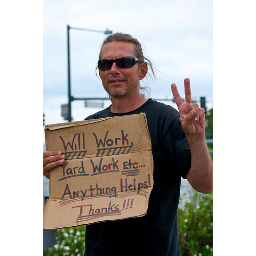 Will Work,
Yard Work Etc...
Anything Helps!
Thanks!!!